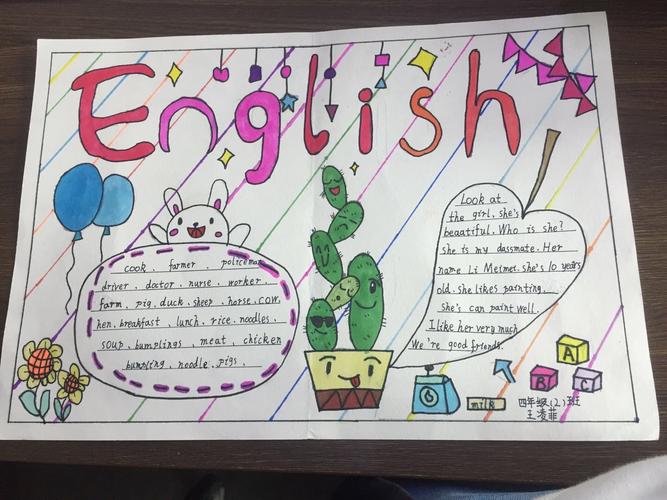 English
cook . farmer . policeman
driver . doctor . nurse . worker .
farm . pig . duck . sheep . horse . cow.
hen . breakfast . lunch . rice . noodles .
soup . bumplings . meat , chicken
bumpling . noodle . pigs .
Look at
the girl. she's
beautiful. Who is she?
she is my dassmate. Her
name Li Meimei. she's 10 years
old. she likes painting.
she's can paint well.
I like her very much
We're good friends.
A
B
C
6
milk
四年级(2)班
王凌菲